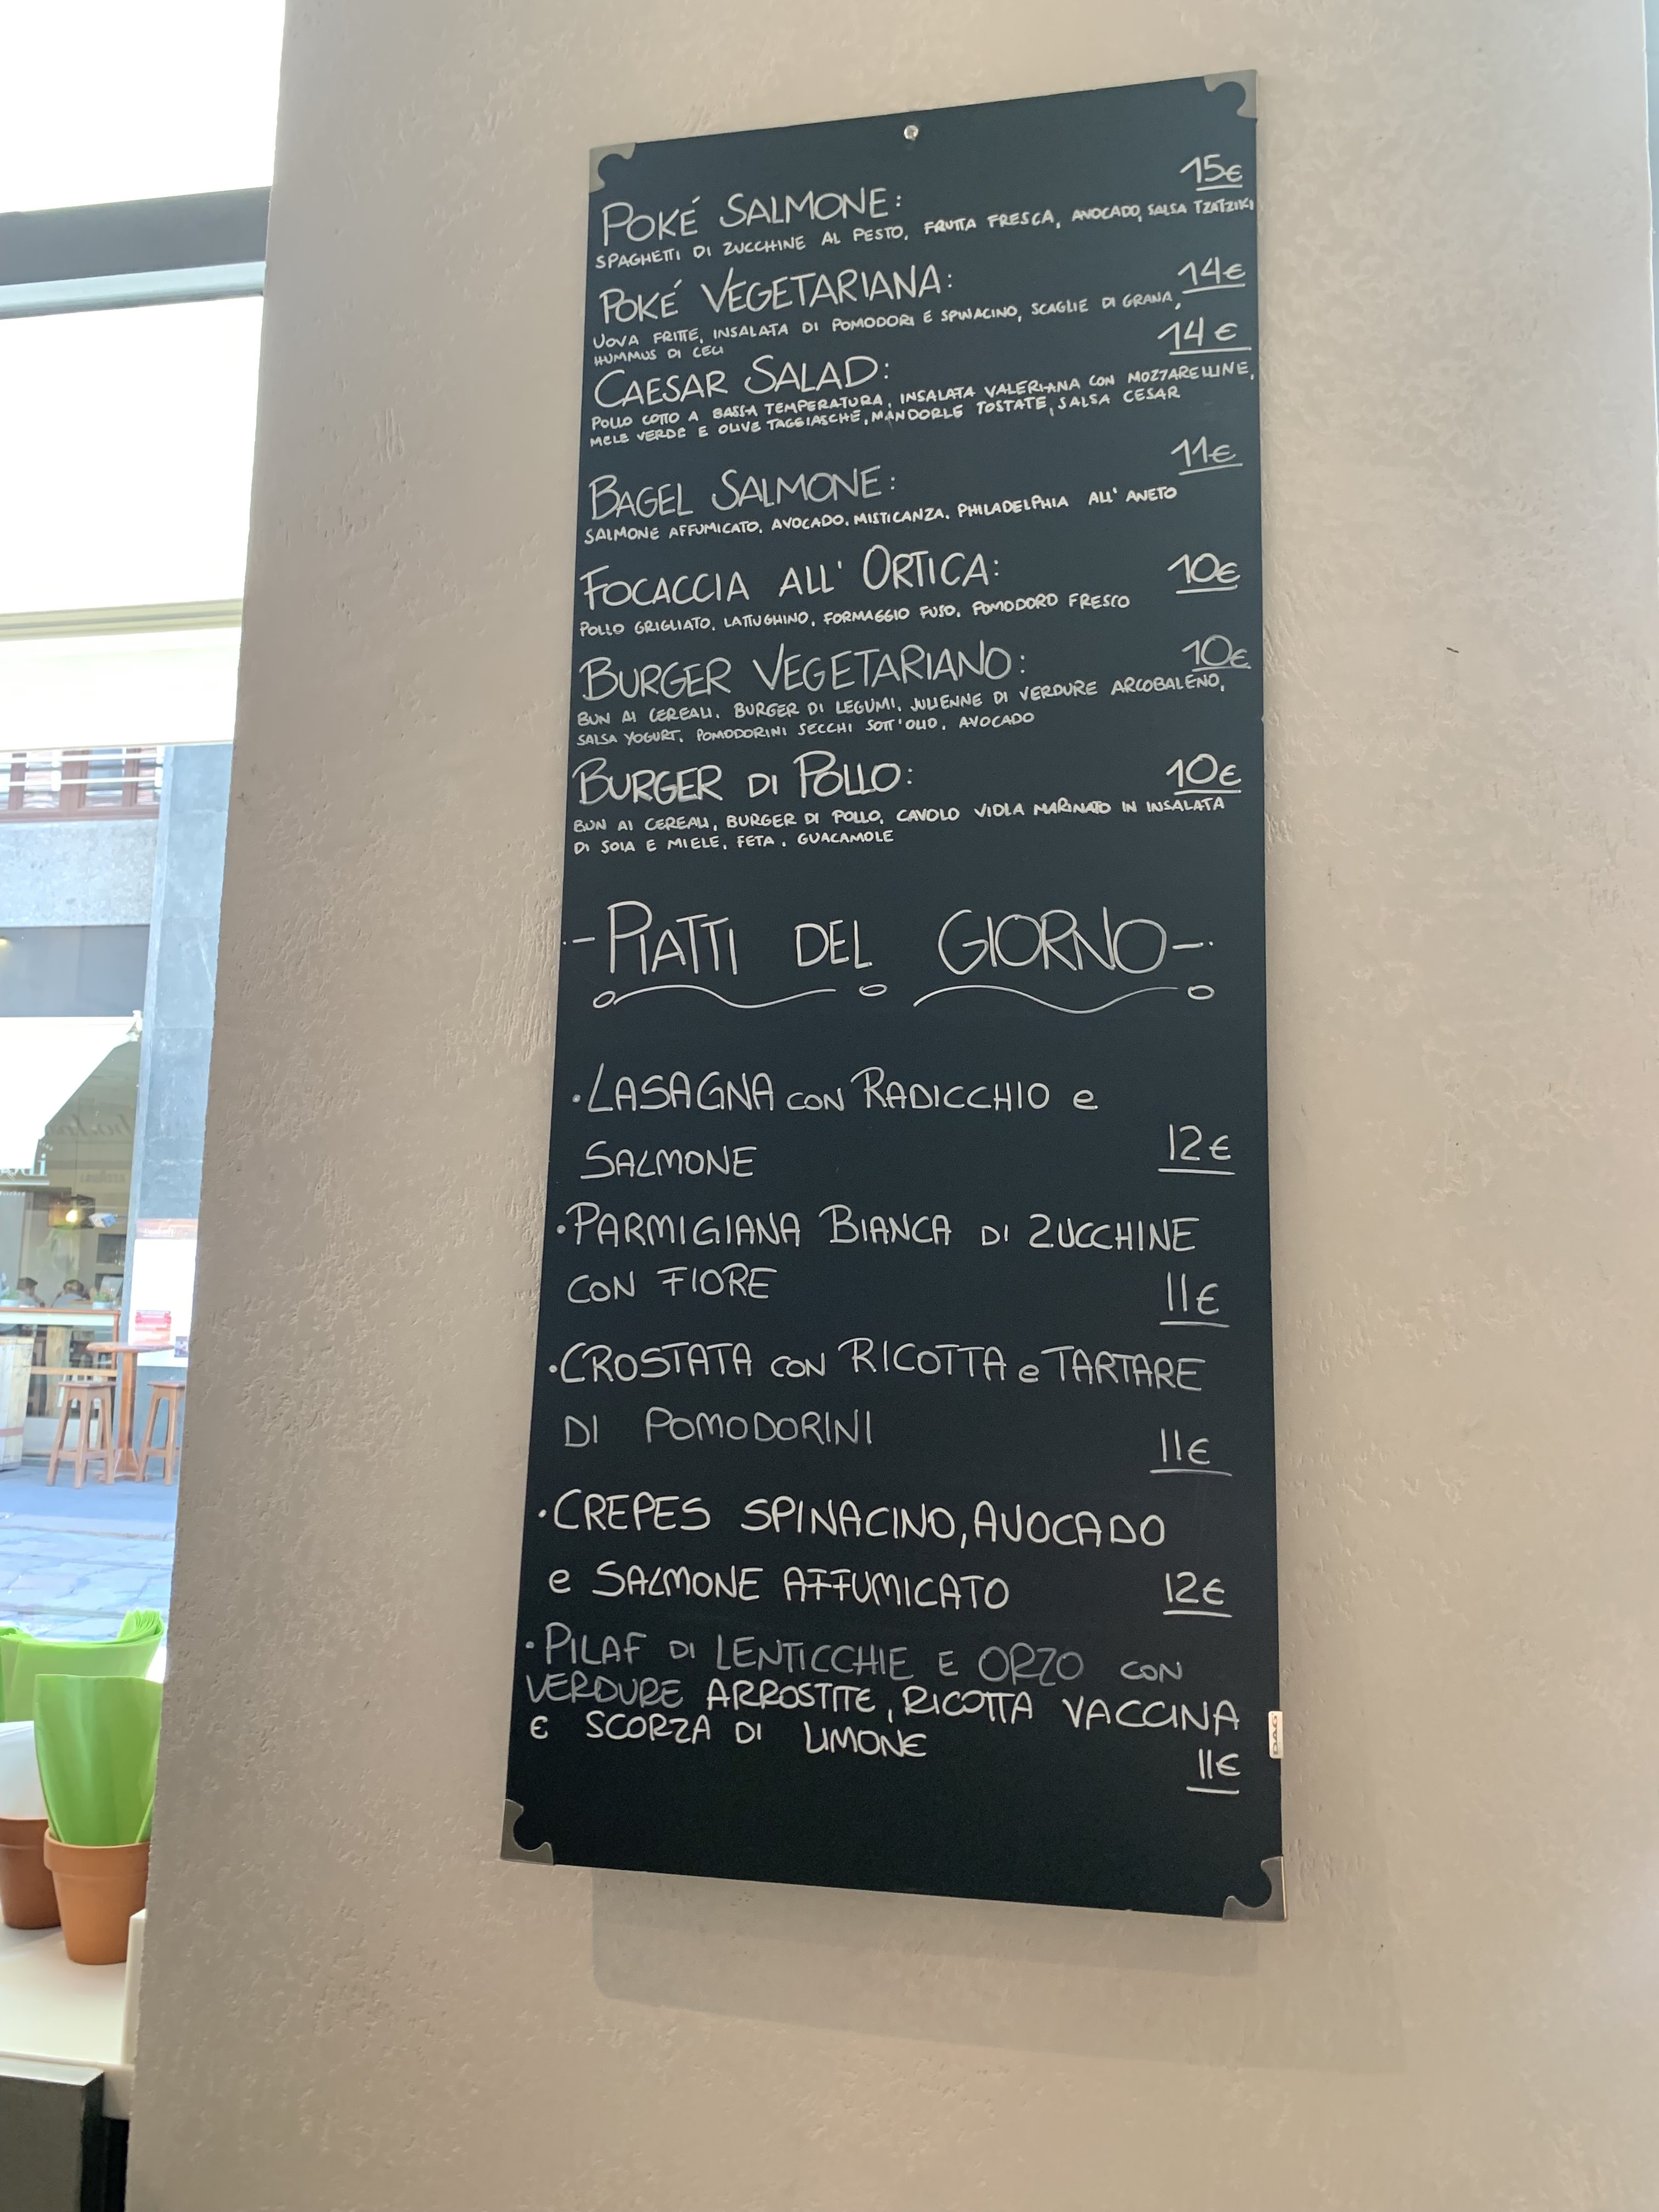 15€
POKÉ SALMONE:
SPAGHETTI DI ZUCCHINE AL PESTO, FRUTTA FRESCA, AVOCADO, SALSA TZATZIKI
POKÉ VEGETARIANA: 14€
UOVA FRITTE, INSALATA DI POMODORI E SPINACINO, SCAGLIE DI GRANA,
HUMMUS DI CECI
CAESAR SALAD: 14€
POLLO COTTO A BASSA TEMPERATURA, INSALATA VALERIANA CON MOZZARELLINE,
MELE VERDE E OLIVE TAGGIASCHE, MANDORLE TOSTATE, SALSA CESAR
11€
BAGEL SALMONE:
SALMONE AFFUMICATO, AVOCADO, MISTICANZA, PHILADELPHIA ALL' ANETO
FOCACCIA ALL' ORTICA: 10€
POLLO GRIGLIATO, LATTUGHINO, FORMAGGIO FUSO, POMODORO FRESCO
BURGER VEGETARIANO: 10€
BUN AI CEREALI, BURGER DI LEGUMI, JULIENNE DI VERDURE ARCOBALENO,
SALSA YOGURT, POMODORINI SECCHI SOTT'OLIO, AVOCADO
BURGER DI POLLO: 10€
BUN AI CEREALI, BURGER DI POLLO, CAVOLO VIOLA MARINATO IN INSALATA
DI SOIA E MIELE, FETA, GUACAMOLE
-PIATTI DEL GIORNO-
·LASAGNA CON RADICCHIO e
SALMONE 12€
·PARMIGIANA BIANCA DI ZUCCHINE
CON FIORE 11€
·CROSTATA CON RICOTTA e TARTARE
DI POMODORINI 11€
·CREPES SPINACINO, AVOCADO
e SALMONE AFFUMICATO 12€
·PILAF DI LENTICCHIE E ORZO CON
VERDURE ARROSTITE, RICOTTA VACCINA
E SCORZA DI LIMONE
11€
DAG